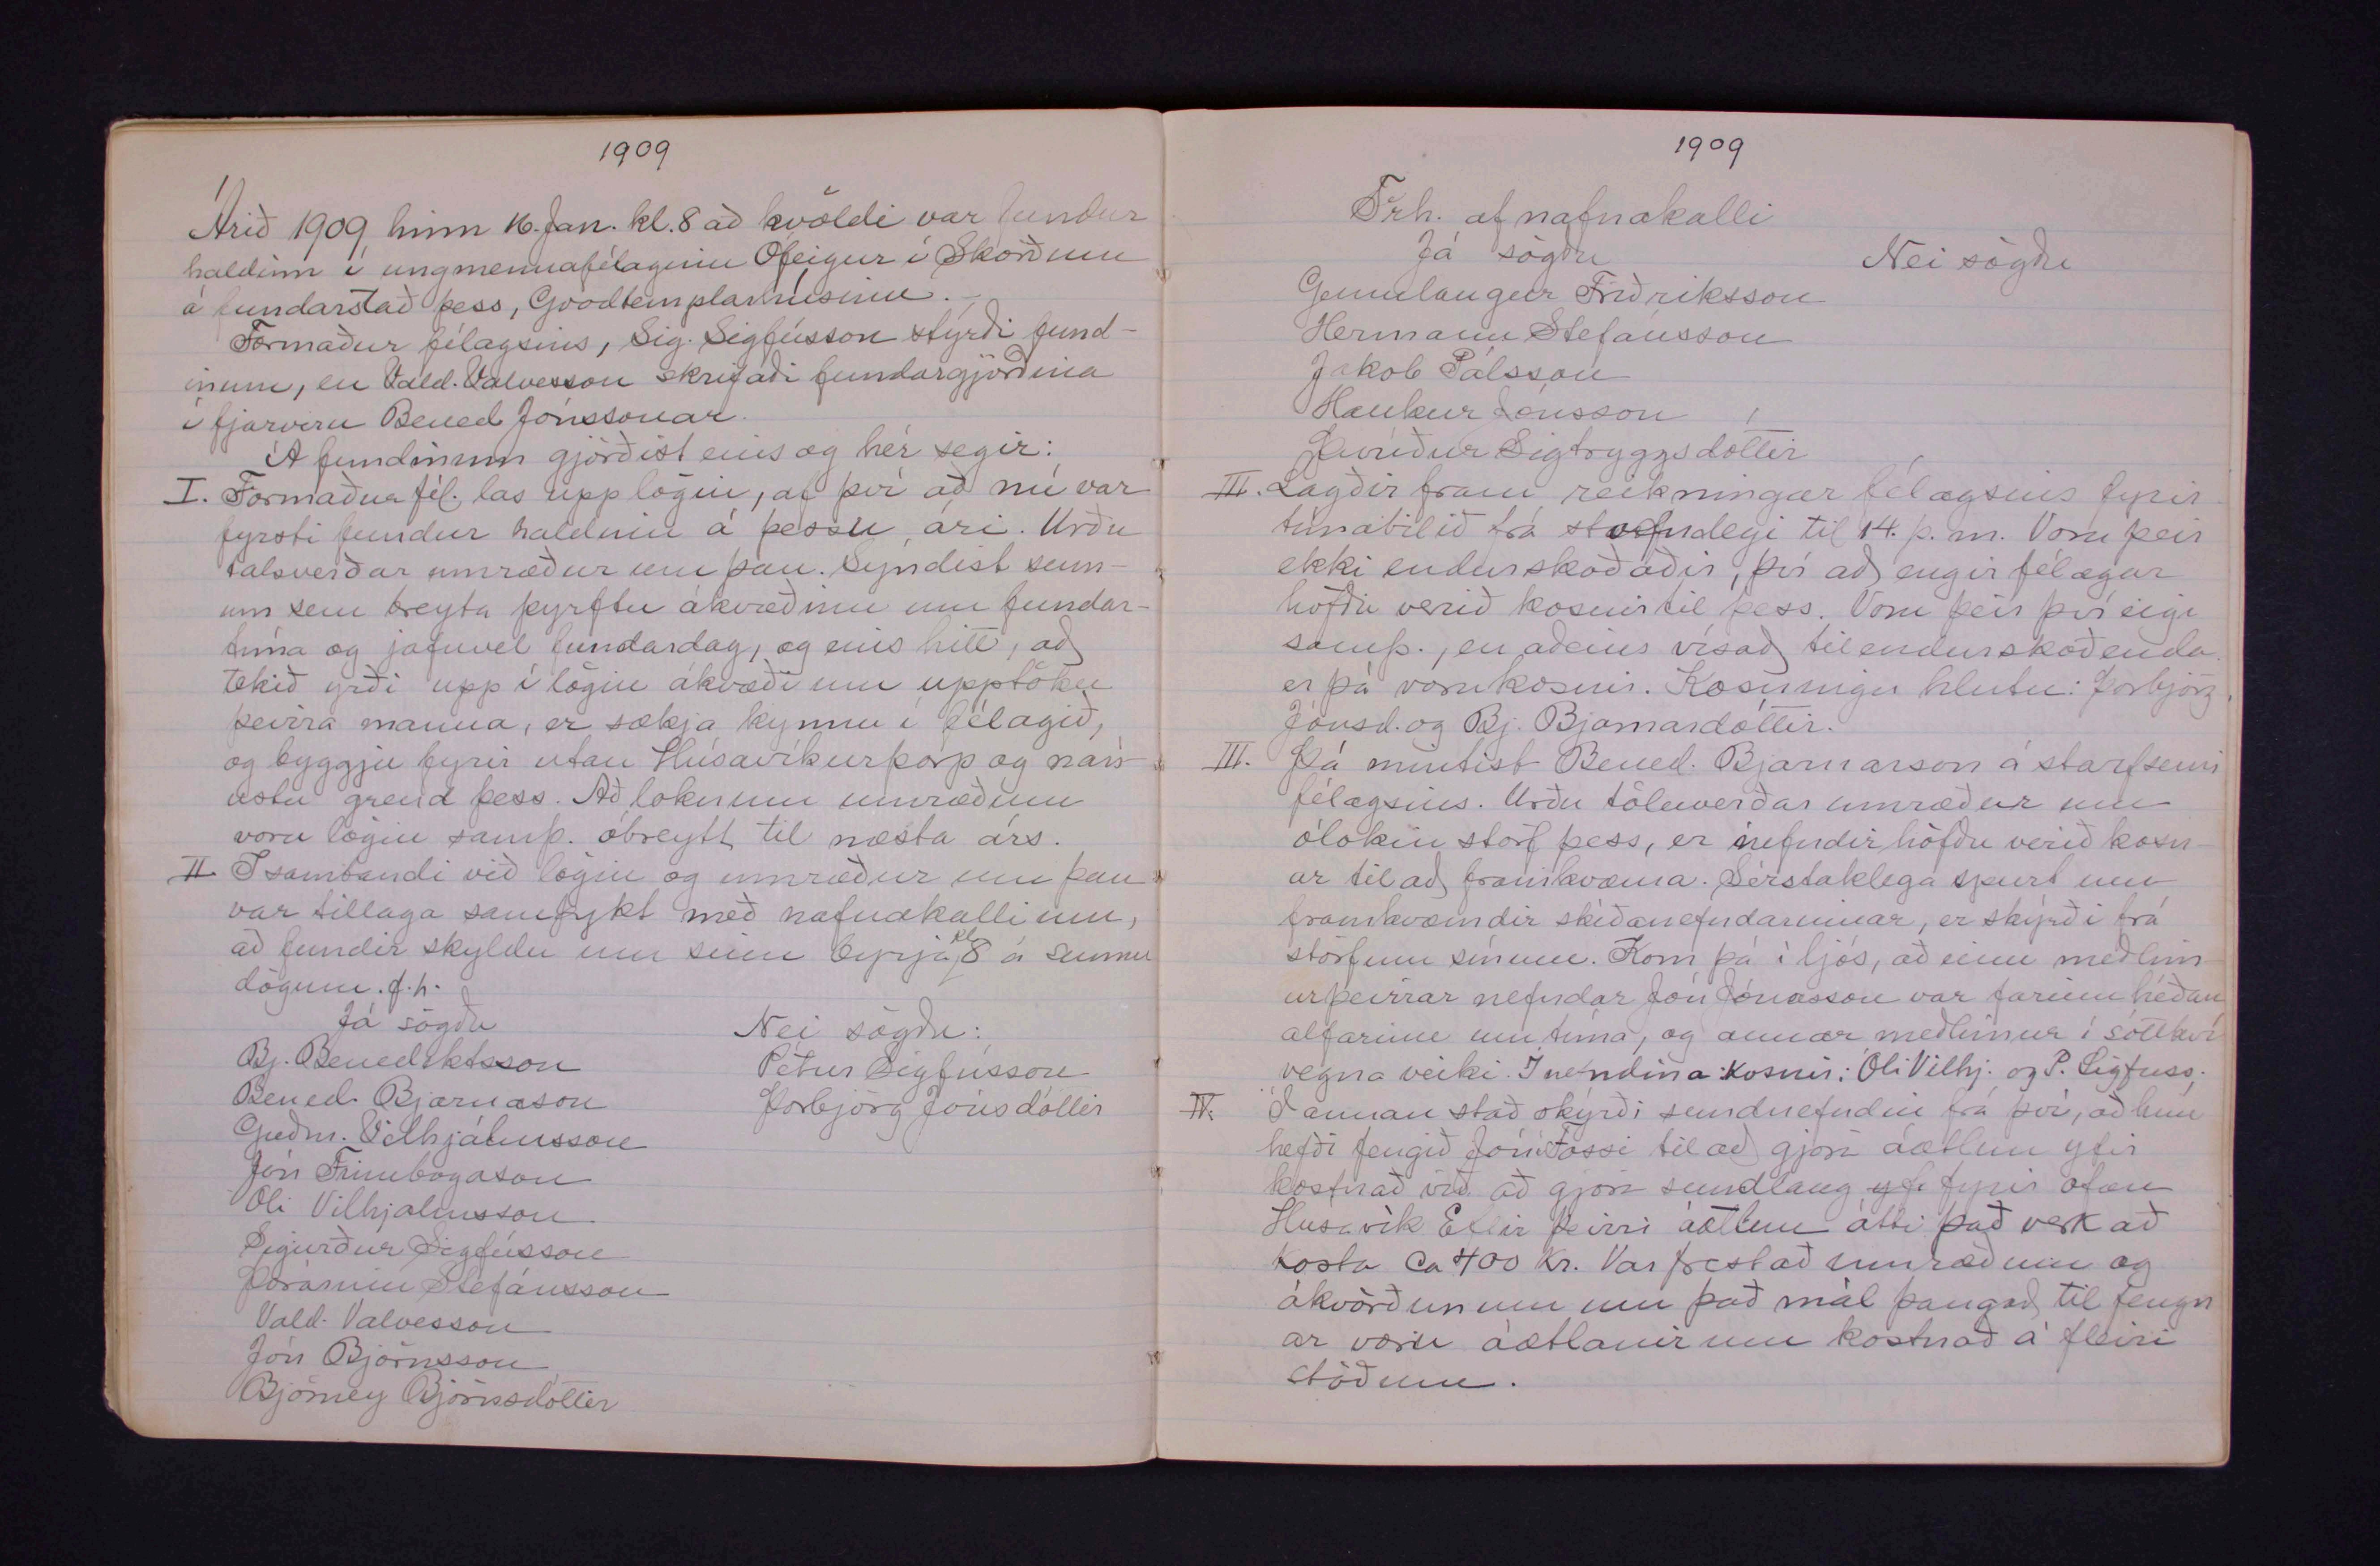 1909
Árið 1909, hinn 16. Jan. kl. 8 að kvöldi var fundur
haldinn í ungmennafélaginu Ófeigur í Skörðum
á fundarstað þess, Goodtemplarhúsinu.
Formaður félagsins, Sig. Sigfússon stýrði fund-
inum, en Vald. Valvesson skrifaði fundargjörðina
í fjarveru Bened Jónssonar.
Á fundinum gjörðist eins og hér segir:
I. Formaður fél. las upp lögin, af því að nú var
fyrsti fundur haldinn á þessu ári. Urðu
talsverðar umræður um þau. Sýndist sum-
um sem breyta þyrftu ákvæðinu um fundar-
tíma og jafnvel fundardag, og eins hitt, að
tekið yrði upp í lögin ákvæði um upptöku
þeirra manna, er sækja kynnu í félagið,
og byggju fyrir utan Húsavíkurþorp og nán-
ustu grend þess. Að loknum umræðum
voru lögin samþ. óbreytt til næsta árs.
II. I sambandi við lögin og umræður um þau
var tillaga samþykt með nafnakalli um,
að fundir skyldu um sinn byrja kl 8 á sunnu
dögum. f.h.
Já sögðu
Nei sögðu:
Bj. Benediktsson
Pétur Sigfússon
Bened. Bjarnason
Þorbjörg Jónsdóttir
Guðm. Vilhjálmsson
Jón Finnbogason
Óli Vilhjalmsson
Sigurður Sigfússon
Þórarinn Stefánsson
Vald. Valvesson
Jón Björnsson
Björney Björnsdóttir
1909
Frh. af nafnakalli
Já sögðu
Nei sögðu
Gunnlaugur Friðriksson
Hermann Stefánsson
Jakob Pálsson
Haukur Jónsson
Þuríður Sigtryggsdóttir
III. Lagðir fram reikningar félagsins fyrir
tímabilið frá stofndegi til 14. þ. m. Voru þeir
ekki endurskoðaðir, því að engir félagar
höfðu verið kosnir til þess. Voru þeir því eigi
samþ., en aðeins vísað til endurskoðenda
er þá voru kosnir. Kosningu hlutu: Þorbjörg
Jónsd. og Bj. Bjarnardóttir.
III. Þá mintist Bened. Bjarnarson á starfsemi
félagsins. Urðu töluverðar umræður um
ólokin störf þess, er nefndir höfðu verið kosn-
ar til að framkvæma. Sérstaklega spurt um
framkvæmdir skíðanefndarinnar, er skýrði frá
störfum sínum. Kom þá í ljós, að einn meðlim-
ur þeirrar nefndar Jón Jónasson var farinn héðan
alfarinn um tíma, og annar meðlimur í sóttkví
vegna veiki. I nefndina kosnir: Óli Vilhj. og P. Sigfúss.
IV. Í annan stað skýrði sundnefndin frá því, að hún
hefði fengið Jón í Fossi til að gjöra áætlun yfir
kostnað við að gjöra sundlaug yfi fyrir ofan
Húsavík Eftir þeirri áætlun átti það verk að
kosta ca 400 Kr. Var frestað umræðum og
ákvörðunum um það mál þangað til fengn
ar voru áætlanir um kostnað á fleiri
stöðum.